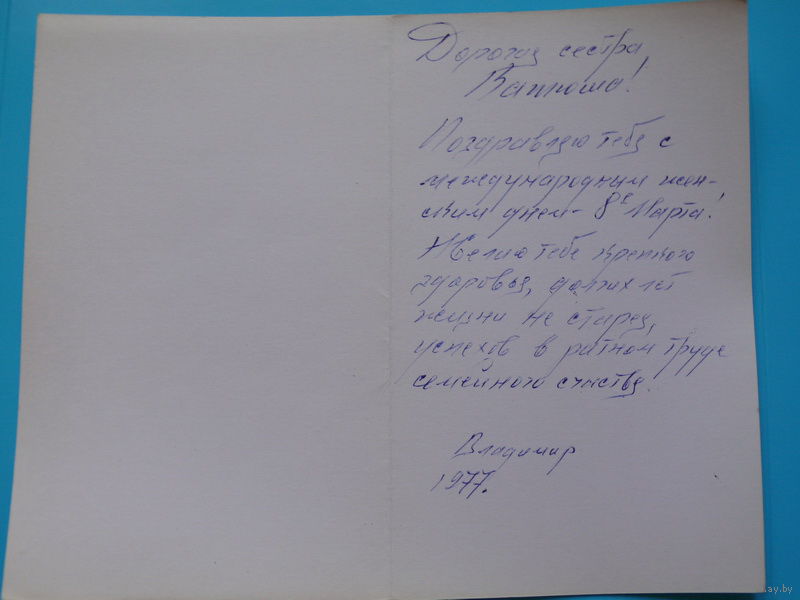 Дорогая сестра
Валюша!
Поздравляю тебя с
международным жен-
ским днем - 8е Марта!
Желаю тебе крепкого
здоровья, долгих лет
жизни не старея,
успехов в ратном труде
семейного счастья.
Владимир
1977.
ay.by